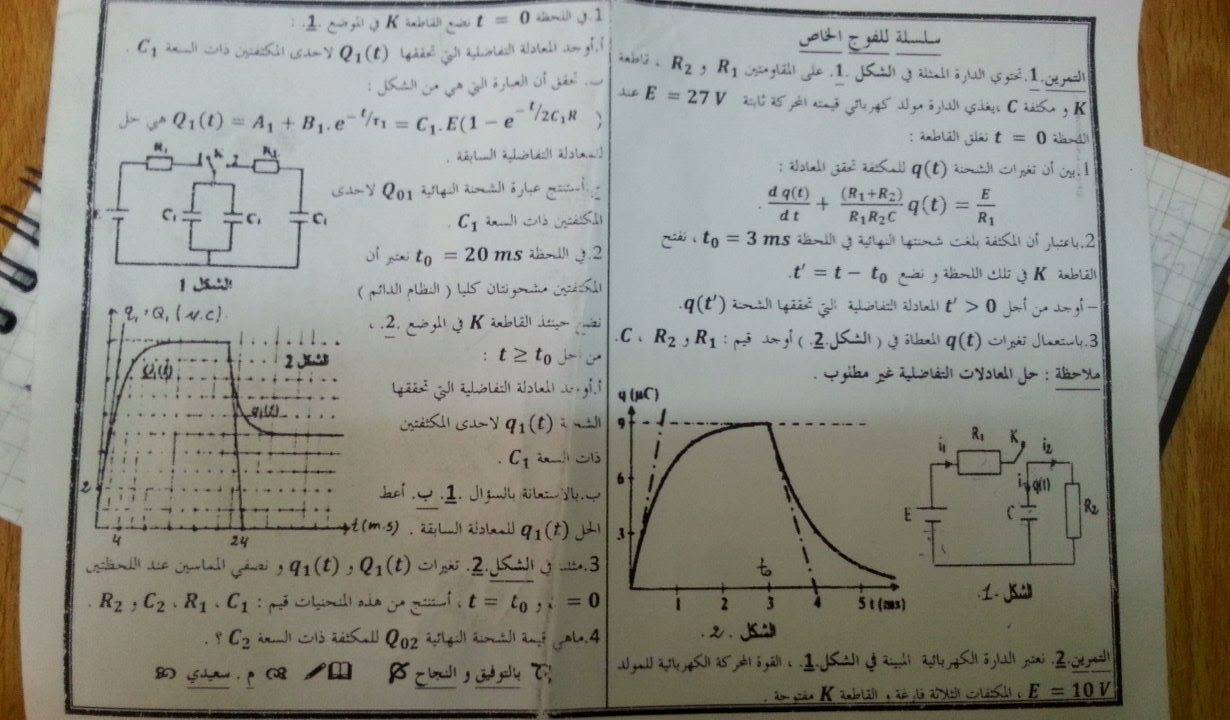 سلسلة للفوج الخاص
التمرين.1. تحتوي الدارة الممثلة في الشكل .1. على المقاومتين R₁ و R₂ ، قاطعة
K و مكثفة C ،يغذي الدارة مولد كهربائي قيمته المحركة ثابتة E = 27 V عند
اللحظة t = 0 نغلق القاطعة :
1.بين أن تغيرات الشحنة q(t) للمكثفة تحقق المعادلة :
d q(t)/d t + (R₁+R₂)/R₁R₂C q(t) = E/R₁ .
2.باعتبار أن المكثفة بلغت شحنتها النهائية في اللحظة t₀ = 3 ms ، نفتح
القاطعة K في تلك اللحظة و نضع t′ = t − t₀.
– أوجد من أجل t′ > 0 المعادلة التفاضلية التي تحققها الشحنة q(t′).
3.باستعمال تغيرات q(t) المعطاة في ( الشكل.2. ) أوجد قيم : R₁ و R₂ ، C.
ملاحظة : حل المعادلات التفاضلية غير مطلوب .
q (μC)
9
6
3
t₀
1 2 3 4 5 t (ms)
الشكل .2.
R₁ K
i₁ i₂
i q(t)
E C R₂
الشكل -1.
التمرين.2. نعتبر الدارة الكهربائية المبينة في الشكل.1. ، القوة المحركة الكهربائية للمولد
E = 10 V ، المكثفات الثلاثة فارغة و القاطعة K مفتوحة .
1.في اللحظة t = 0 نضع القاطعة K في الموضع .1. :
أ.أوجد المعادلة التفاضلية التي تحققها Q₁(t) لاحدى المكثفتين ذات السعة C₁ .
ب. تحقق أن العبارة التي هي من الشكل :
Q₁(t) = A₁ + B₁.e^(−t/τ₁) = C₁.E(1 − e^(−t/2C₁R) ) هي حل
للمعادلة التفاضلية السابقة .
ج.أستنتج عبارة الشحنة النهائية Q₀₁ لاحدى
المكثفتين ذات السعة C₁ .
R₁ 1 K 2 R₂
C₁ C₁ C₁
الشكل 1
2.في اللحظة t₀ = 20 ms نعتبر أن
المكثفتين مشحونتان كليا ( النظام الدائم )
نضع حينئذ القاطعة K في الموضع .2. ،
من أجل t ≥ t₀ :
أ.أوجد المعادلة التفاضلية التي تحققها
الشحنة q₁(t) لاحدى المكثفتين
ذات السعة C₁ .
ب.بالاستعانة بالسؤال .1. ب. أعط
الحل q₁(t) للمعادلة السابقة .
q₁, Q₁ (μ.C)
الشكل 2
Q₁(t)
q₁(t)
2
4 24 t(m.s)
3.مثلت في الشكل.2. تغيرات Q₁(t) و q₁(t) و نصفي المماسين عند اللحظتين
= 0 و t = t₀ ، أستنتج من هذه المنحنيات قيم : C₁ ، R₁ ، C₂ و R₂ .
4.ماهي قيمة الشحنة النهائية Q₀₂ للمكثفة ذات السعة C₂ ؟ .
بالتوفيق و النجاح م . سعيدي